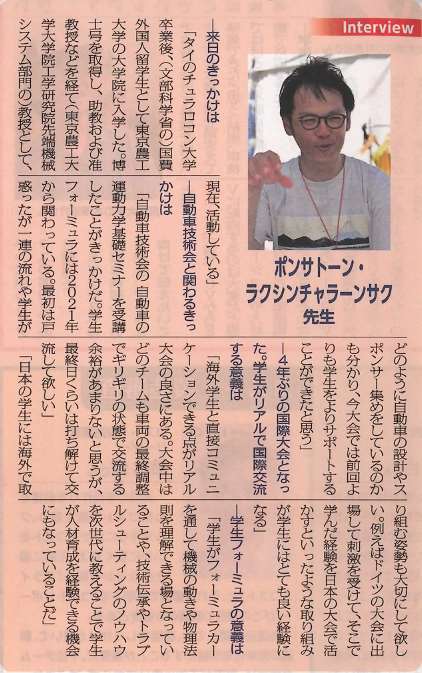 Interview
ポンサトーン・
ラクシンチャラーンサク
先生
―来日のきっかけは
「タイのチュラロコン大学
卒業後、(文部科学省の)国費
外国人留学生として東京農工
大学の大学院に入学した。博
士号を取得し、助教および准
教授などを経て(東京農工大
学大学院工学研究院先端機械
システム部門の)教授として、
現在、活動している」
―自動車技術会と関わるきっ
かけは
「自動車技術会の 自動車の
運動力学基礎セミナーを受講
したことがきっかけだ。学生
フォーミュラには2021年
から関わっている。最初は戸
惑ったが一連の流れや学生が
どのように自動車の設計やス
ポンサー集めをしているのか
も分かり、今大会では前回よ
りも学生をよりサポートする
ことができたと思う」
―4年ぶりの国際大会となっ
た。学生がリアルで国際交流
する意義は
「海外学生と直接コミュニ
ケーションできる点がリアル
大会の良さにある。大会中は
どのチームも車両の最終調整
でギリギリの状態で交流する
余裕があまりないと思うが、
最終日くらいは打ち解けて交
流して欲しい」
「日本の学生には海外で取
り組む姿勢も大切にして欲し
い。例えばドイツの大会に出
場して刺激を受けて、そこで
学んだ経験を日本の大会で活
かすといったような取り組み
が学生にはとても良い経験に
なる」
―学生フォーミュラの意義は
「学生がフォーミュラカー
を通して機械の動きや物理法
則を理解できる場となってい
ることや、技術伝承やトラブ
ルシューティングのノウハウ
を次世代に教えることで学生
が人材育成を経験できる機会
にもなっていることだ」